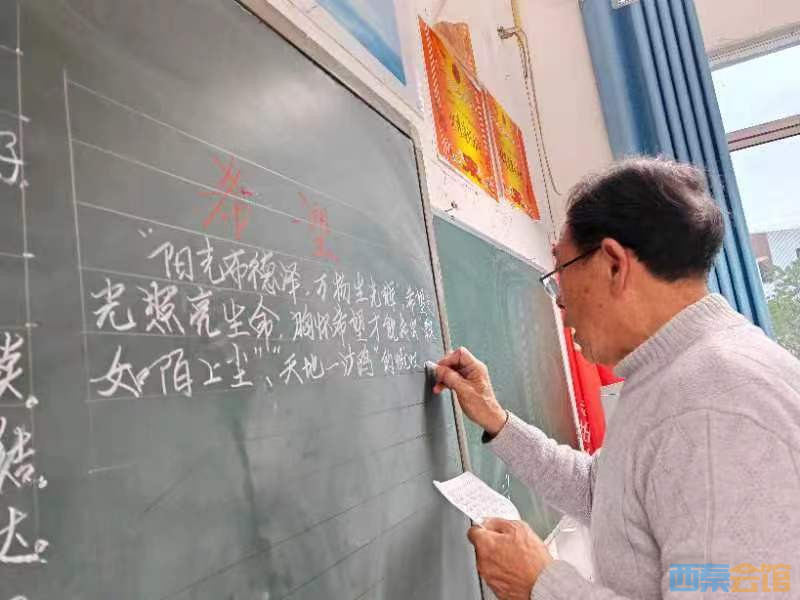 希望
“阳光布德泽，万物生光辉，希望
光照亮生命，胸怀希望才能
陌上尘”、“天地一沙鸥”的
结。
达。
西秦会馆